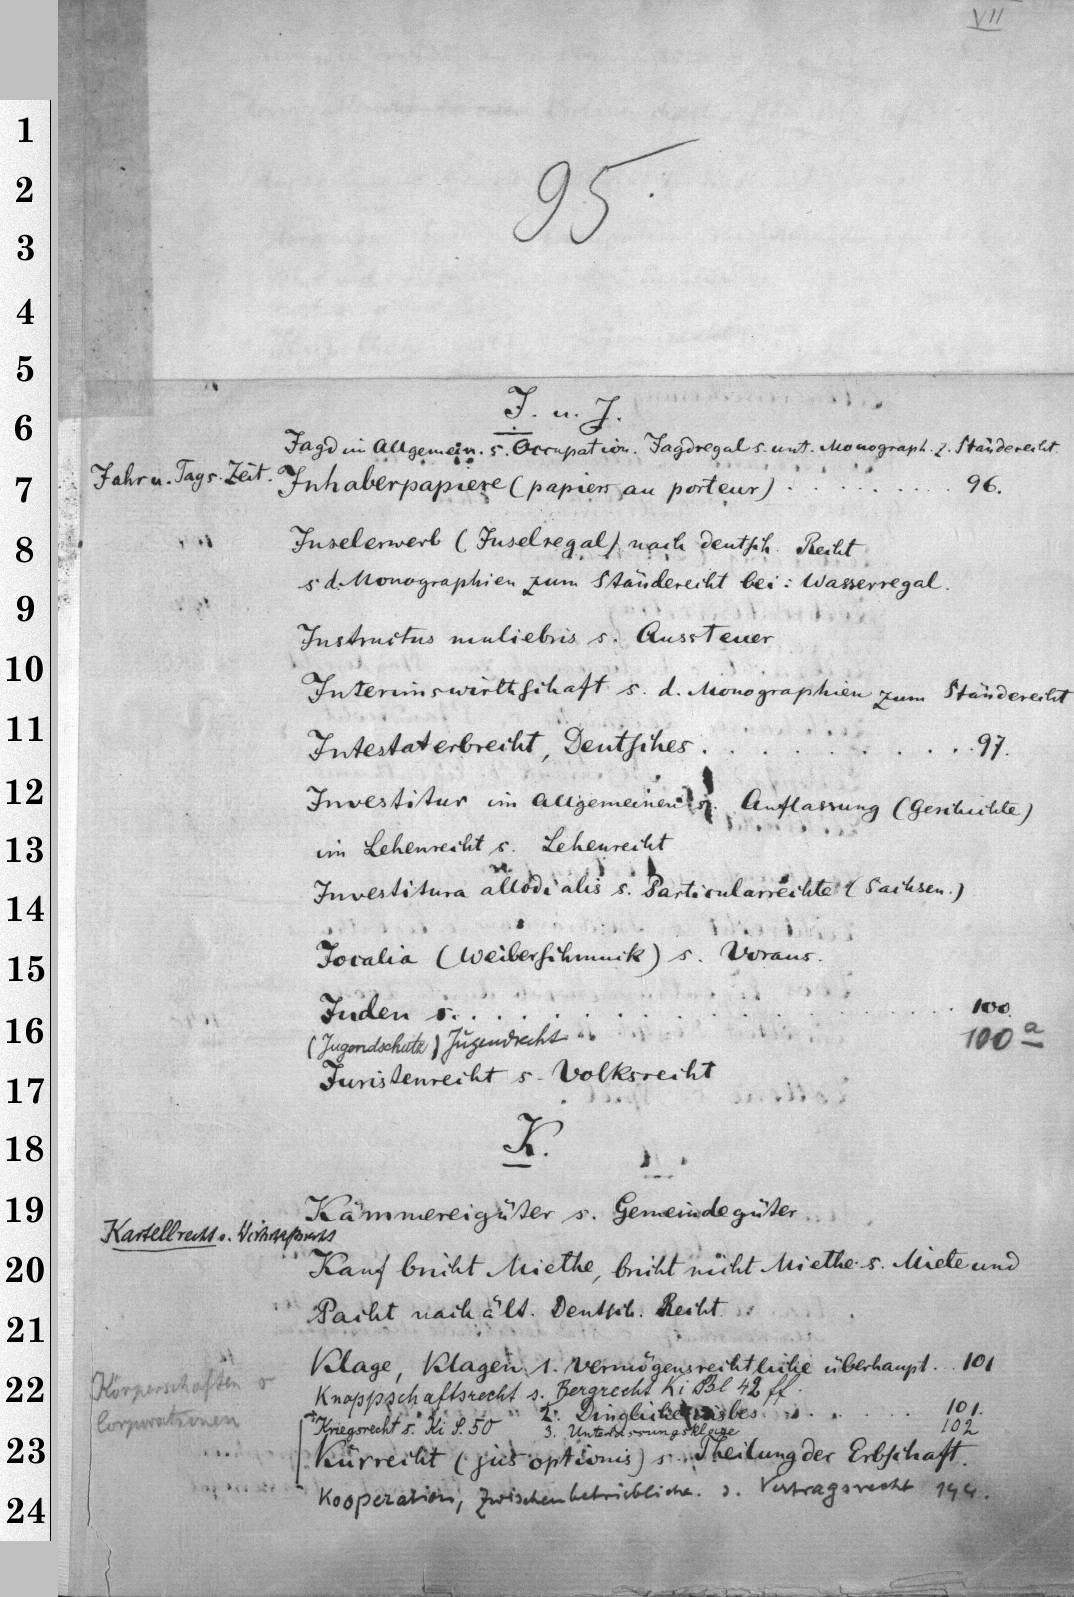 VII
1
2
95.
3
4
5
I. u. J.
6
Jagd im Allgemein. s. Occupation. Jagdregal s. unt. Monograph. z. Ständerecht
Jahr u. Tag s. Zeit.
7
Inhaberpapiere (papiers au porteur) . . . . . . . . . 96.
8
Inselerwerb (Inselregal) nach deutsch. Recht
s. d. Monographien zum Ständerecht bei: Wasserregal.
9
Instructus muliebris s. Aussteuer
10
Interimswirthschaft s. d. Monographien zum Ständerecht
11
Intestaterbrecht, Deutsches . . . . . . . . . 97.
12
Investitur im Allgemeinen s. Auflassung (Geschichte)
13
im Lehenrecht s. Lehenrecht
14
Investitura allodialis s. Particularrechte (Sachsen.)
15
Jocalia (Weiberschmuk) s. Voraus.
Juden s. . . . . . . . . . . 100.
16
(Jugendschutz) Jugendrecht 100 a
17
Juristenrecht s. Volksrecht
18
K.
19
Kämmereigüter s. Gemeindegüter
Kartellrecht s. Wirtschaftsrecht
20
Kauf bricht Miethe, bricht nicht Miethe s. Miete und
21
Pacht nach ält. Deutsch. Recht.
Klage, Klagen 1. vermögensrechtliche überhaupt . . 101
22
Körperschaften s
Knappschaftsrecht s. Bergrecht Ki Bl 42 ff.
" 2. Dingliche insbes . . . . . 101.
Corporationen
Kriegsrecht s. Ki S. 50 3. Unterlassungsklage 102
23
Kürrecht (jus optionis) s. Theilung der Erbschaft.
24
Kooperation, zwischenbetriebliche. s. Vertragsrecht 144.